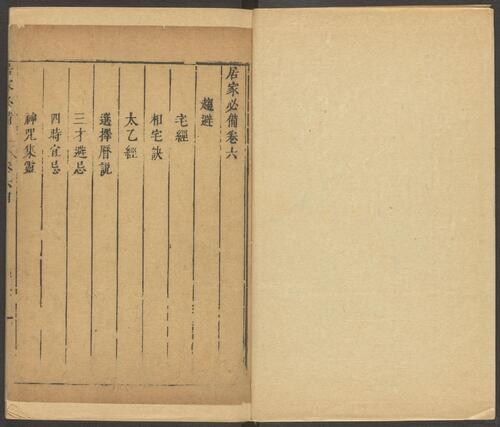 居家必備卷六
趨避
宅經
相宅訣
太乙經
選擇曆說
三才避忌
四時宜忌
神咒集靈